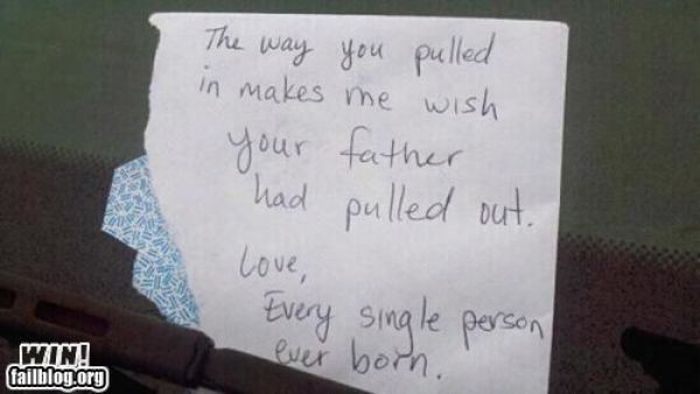 The way you pulled
in makes me wish
your father
had pulled out.
Love,
Every single person
ever born.
WIN!
failblog.org